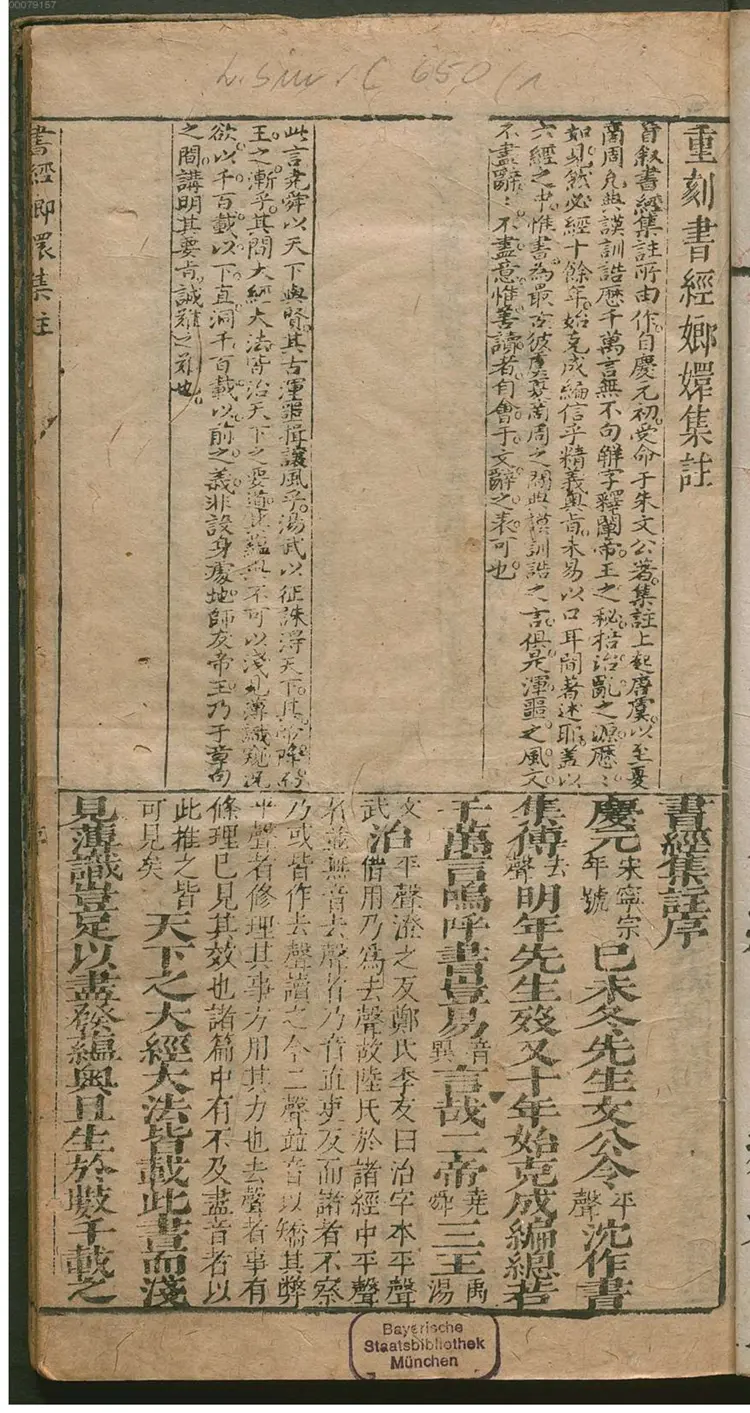 00079157
L. sin. C 650 (1
重刻書經嫏嬛集註
首叙書經集註所由作自慶元初受命于朱文公著集註上起唐虞以至夏
商周凡典謨訓誥歷千萬言無不句觧字釋闡帝王之秘括治亂之源歷：
如見然必經十餘年始克成編信乎精義奧旨未易以口耳間著述耶蓋以
六經之中惟書為最古彼虞夏商周之間典謨訓誥之言俱是渾噩之風文
不盡辭：不盡意惟善讀者自會于文辭之表可也
此言堯舜以天下與賢其古渾噩揖讓風乎湯武以征誅得天下其帝降
王之漸乎其間大經大法皆治天下之要道其蘊奧不可以淺見薄識窺況
欲以千百載以下直洞千百載以前之義非設身處地師友帝王乃于章句
之間講明其要旨誠難之難也
書經嫏嬛集註
書經集註序
慶元宋寧宗年號巳未冬先生文公令平聲沈作書
集傳去聲明年先生歿又十年始克成編總若
千萬言嗚呼書豈易音異言哉二帝堯舜三王禹湯
文武治平聲澄之反鄭氏季友曰治字本平聲
借用乃為去聲故陸氏於諸經中平聲
者並無音去聲者乃音直吏反而讀者不察
乃或皆作去聲讀之今二聲並音以矯其弊
平聲者修理其事方用其力也去聲者事有
條理巳見其效也諸篇中有不及盡音者以
此推之皆可見矣天下之大經大法皆載此書而淺
見薄識豈足以盡發蘊奧且生於數千載之
序
Bayerische
Staatsbibliothek
München